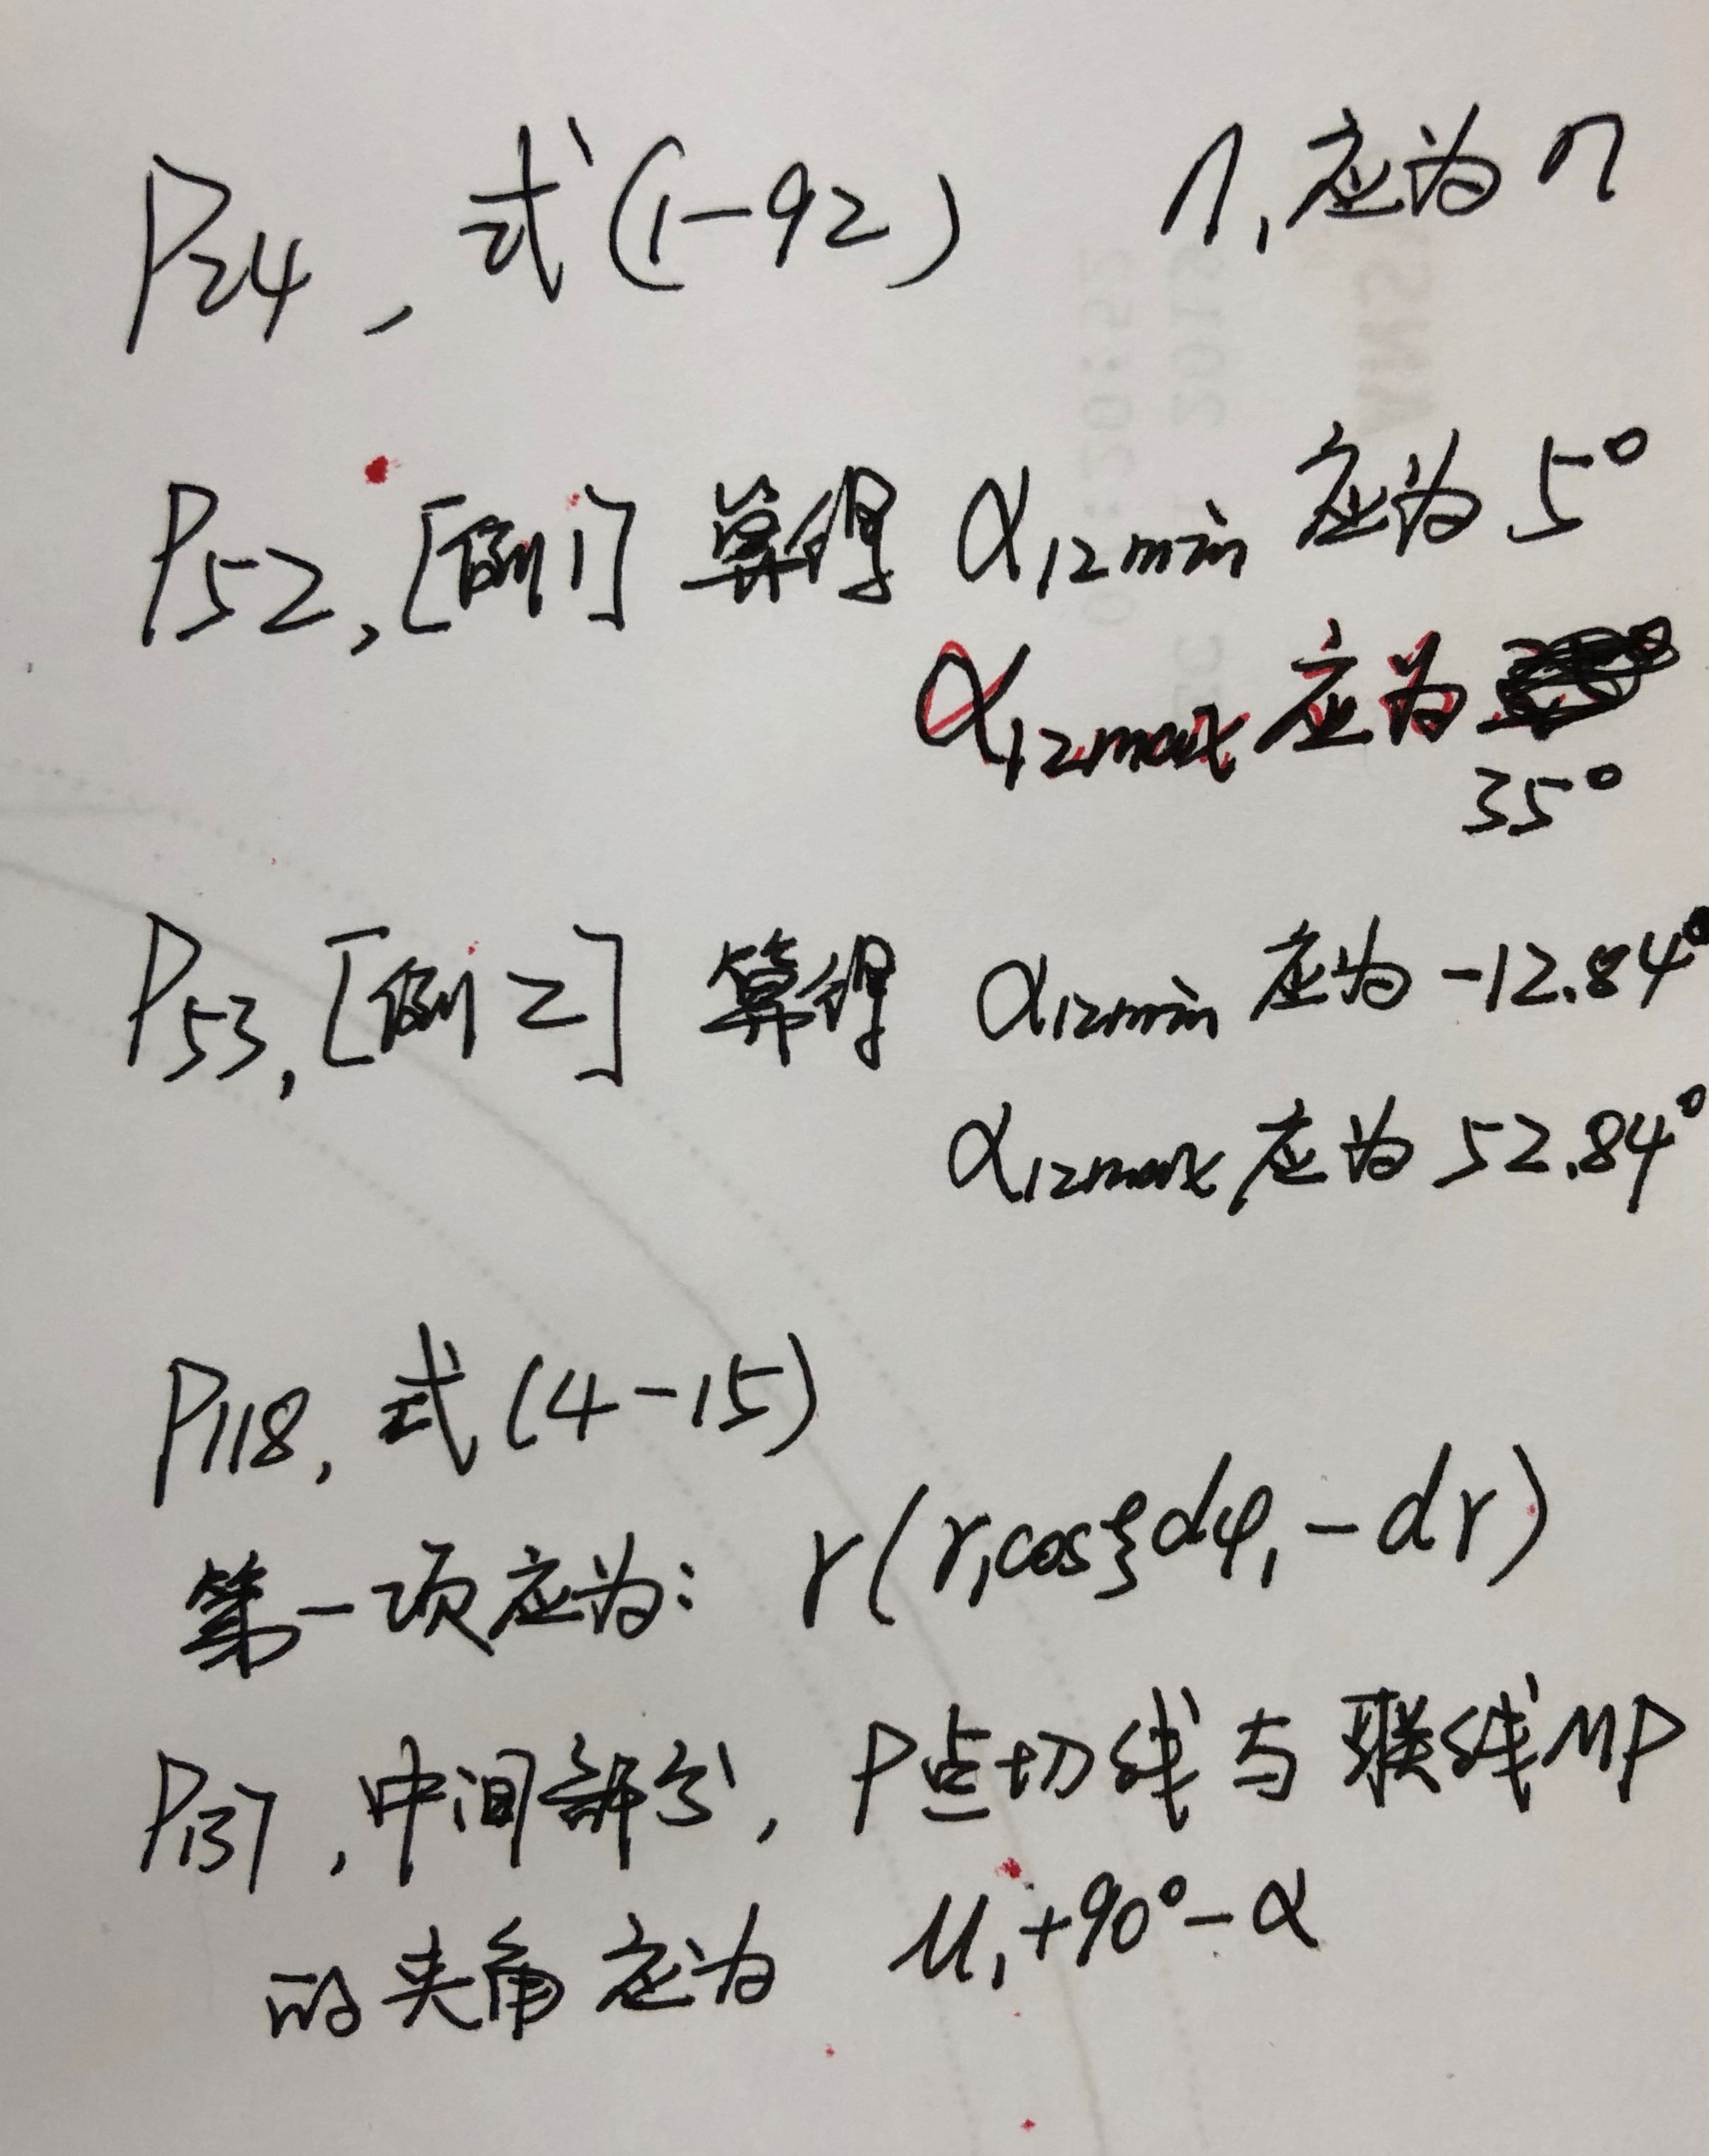 P24, 式(1-92) n₁应为n
P52, [例1] 算得 α12min 应为 5°
α12max 应为
35°
P53, [例2] 算得 α12min 应为 -12.84°
α12max 应为 52.84°
P118, 式(4-15)
第一项应为: r(r₁cosξdφ₁-dr)
P137, 中间部分, P点切线与联线MP
的夹角应为 μ₁+90°-α